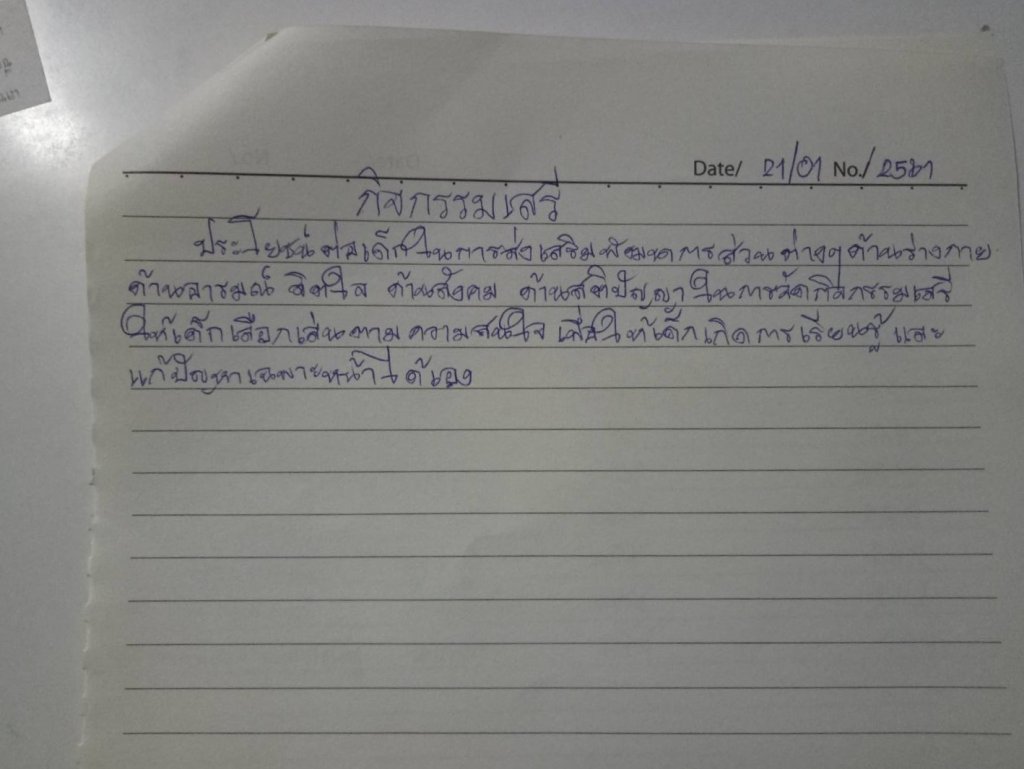 Date/ 21/01 No./ 2561
กิจกรรมเสรี
ประโยชน์ต่อเด็กในการส่งเสริมพัฒนาการส่วนต่างๆ ด้านร่างกาย
ด้านอารมณ์ จิตใจ ด้านสังคม ด้านสติปัญญา ในการจัดกิจกรรมเสรี
ให้เด็กเลือกเล่นตามความสนใจ เพื่อให้เด็กเกิดการเรียนรู้ และ
แก้ปัญหาเฉพาะหน้าได้เอง